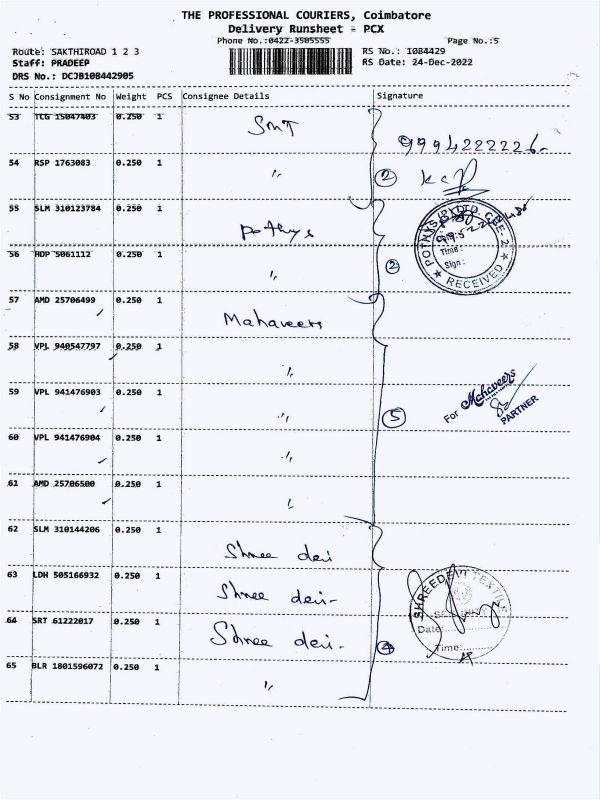 THE PROFESSIONAL COURIERS, Coimbatore
Delivery Runsheet - PCX
Phone No.:0422-3505555 Page No.:5
Route: SAKTHIROAD 1 2 3 RS No.: 1084429
Staff: PRADEEP RS Date: 24-Dec-2022
DRS No.: DCJB108442905
S No Consignment No Weight PCS Consignee Details Signature
53 TLG 15047403 0.250 1 SMT
9994222226-
54 RSP 1763083 0.250 1 〃 ②
55 SLM 310123784 0.250 1 Pothys
POTHYS (P) LTD. CBE-2
Time:
Sign:
RECEIVED
56 HDP 5061112 0.250 1 〃 ②
57 AMD 25706499 0.250 1 Mahaveers
58 VPL 940547797 0.250 1 〃
59 VPL 941476903 0.250 1 〃 ⑤
For Mahaveers
PARTNER
60 VPL 941476904 0.250 1 〃
61 AMD 25706500 0.250 1 〃
62 SLM 310144206 0.250 1 Shree devi
63 LDH 505166932 0.250 1 Shree devi-
SHREEDEVI TEXTILE
64 SRT 61222017 0.250 1 Shree devi- ④
Date:
Time:
65 BLR 1801596072 0.250 1 〃